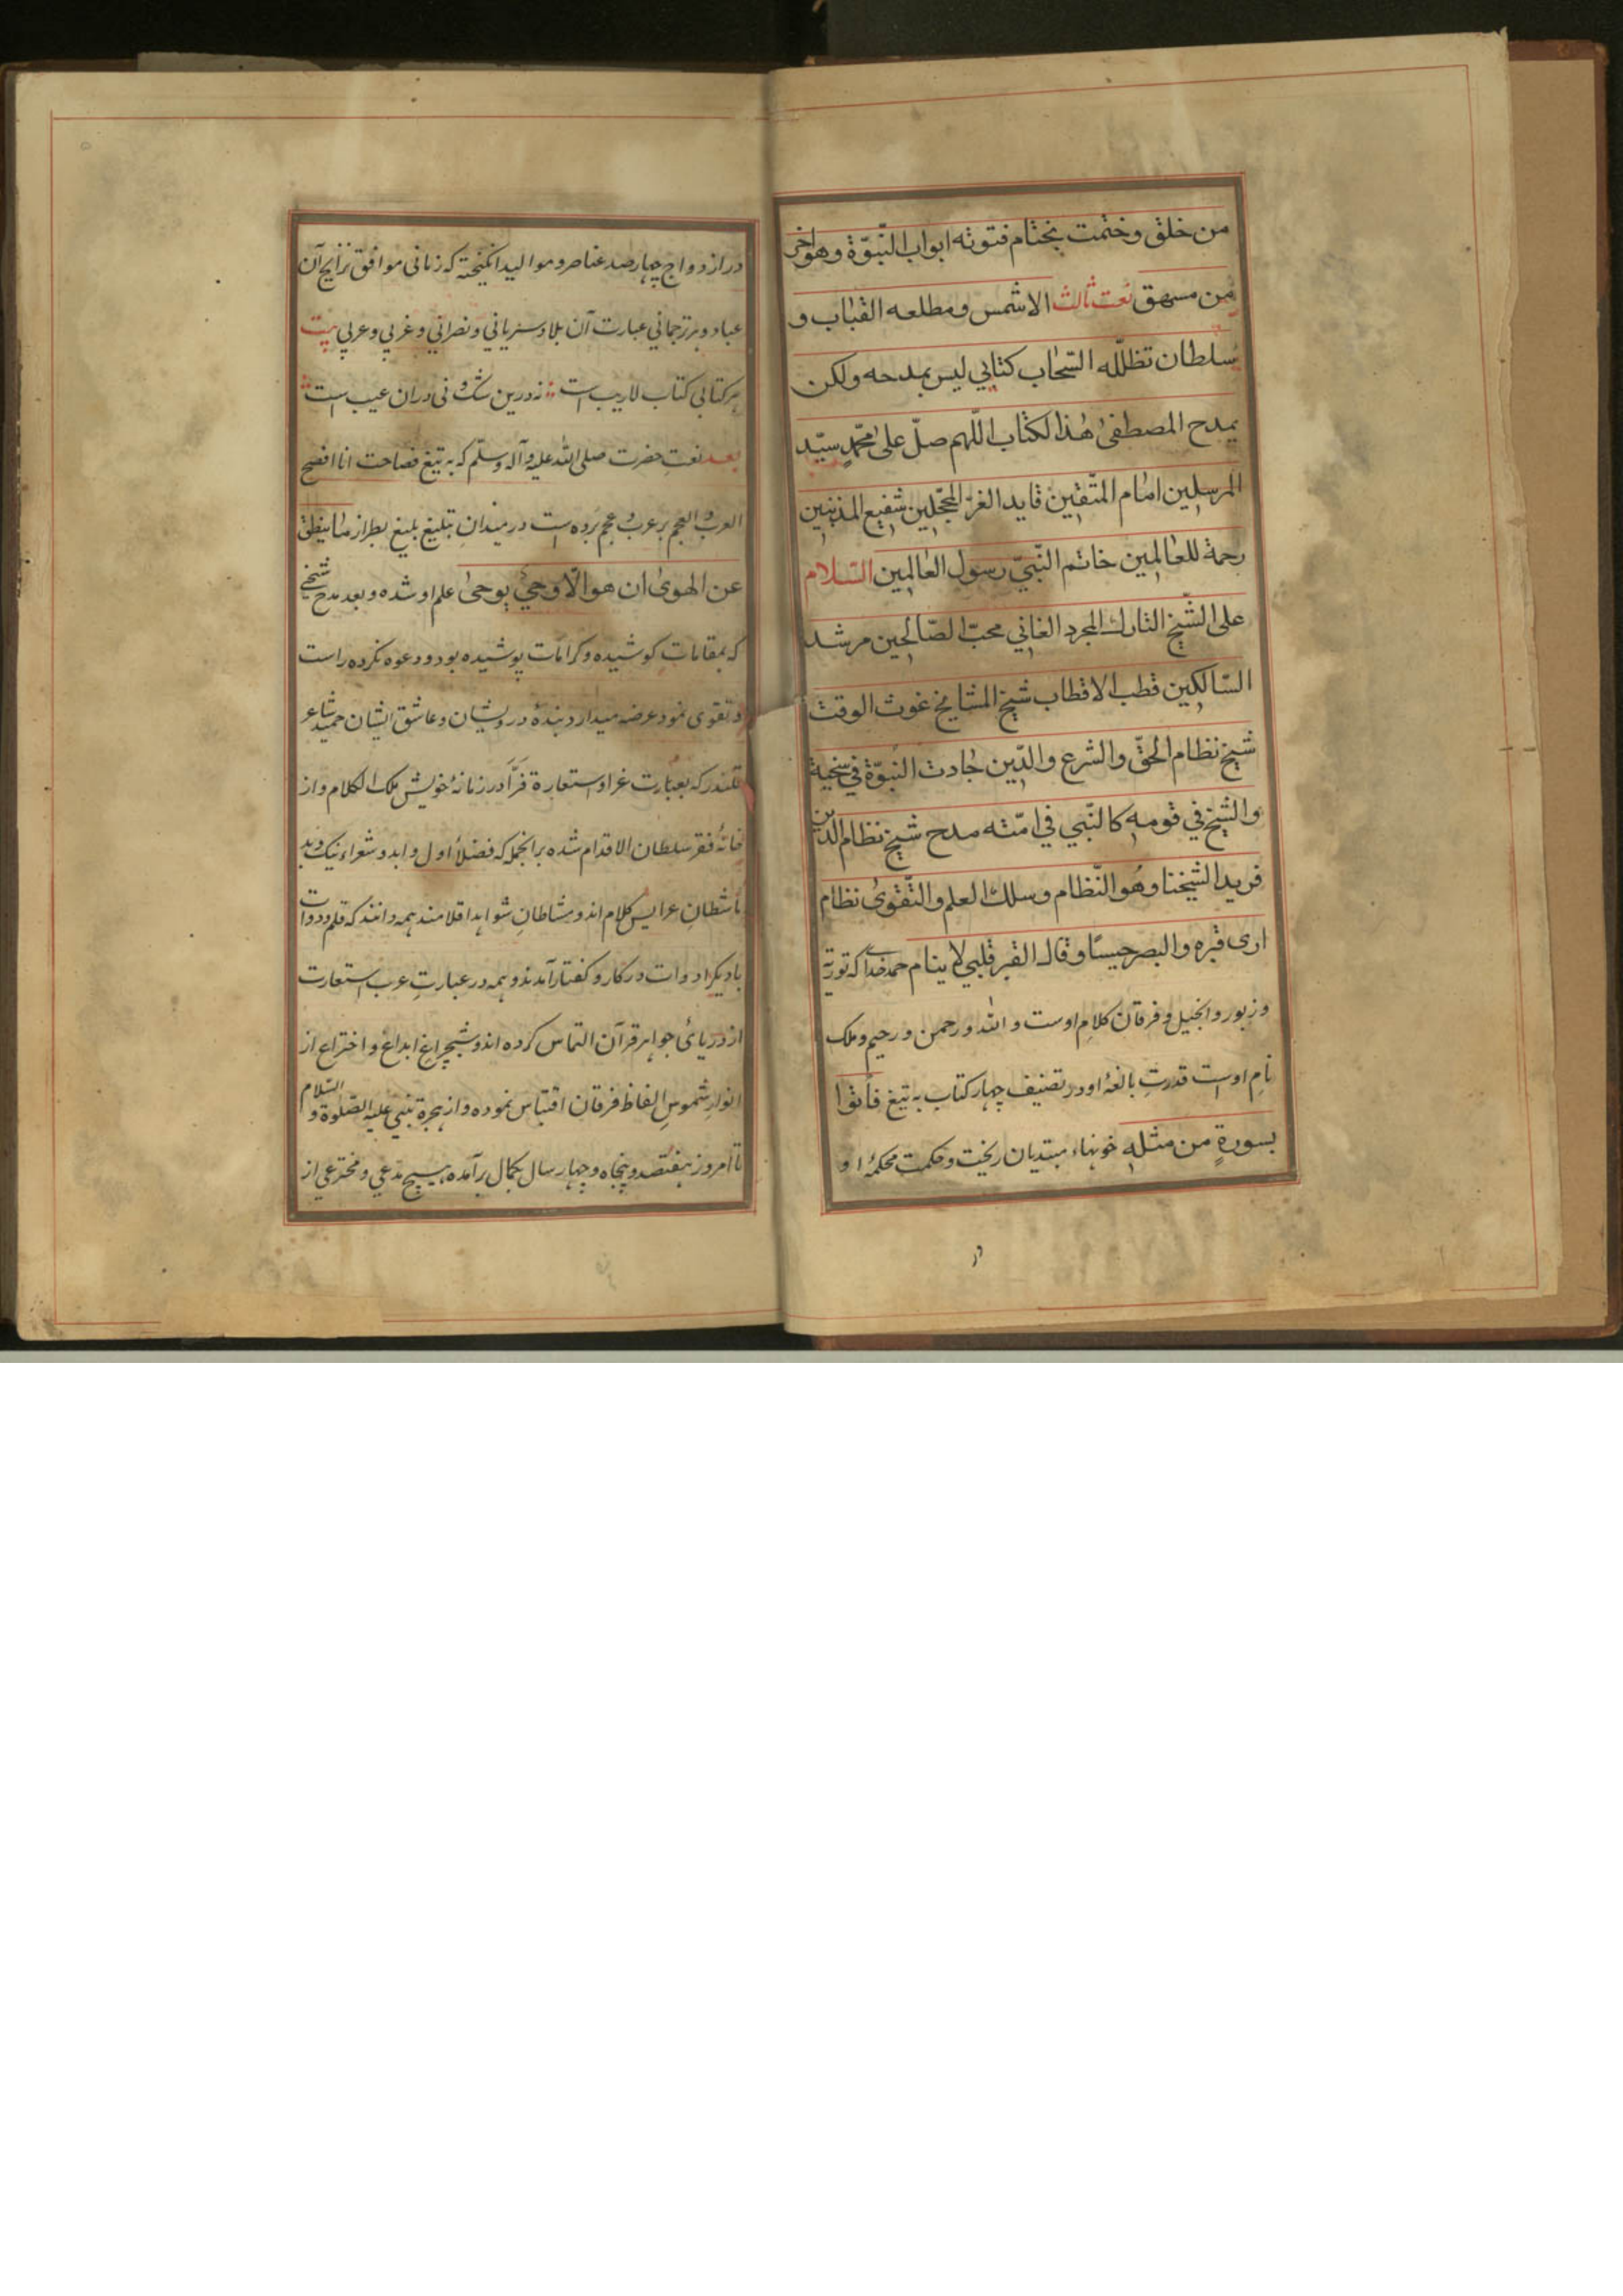 من خلق وختمت بختام فتوته ابواب النّبوّة وهو آخر
من مسهق نعت ثالث الا شمس ومطلعه القباب و
سلطان تظلّله السّحاب كتابي ليس بمدحه ولكن
بمدح المصطفىٰ هٰذا لكتاب اللّهم صلّ علىٰ محمّدٍ سيّد
المرسلين امام المتّقين قايد الغرّ المحجّلين شفيع المذنبين
رحمة للعالمين خاتم النّبيّ رسول العالمين السّلام
على الشّيخ التارك المجرد الغاني محبّ الصّالحين مرشد
السّالكين قطب الاقطاب شيخ المشايخ غوث الوقت
شيخ نظام الحقّ والشرع والدّين جادت النبوّة في
والشيخ في قومه كالنّبي في امّته مدح شيخ نظام الدين
فريد الشيخنا وهو النّظام وسلك العلم والتّقوىٰ نظام
ارى قبره والبصر وقال القبر قلبي لا ينام حمد خدای که توریة
وزبور وانجیل و فرقان کلامِ اوست و الله و رحمن و رحیم و ملک
نامِ اوست قدرتِ بالغهٔ او در تصنیف چهار کتاب به تیغ فأتوا
بسورةٍ من مثله خونهاء مبتدیان ریخت و حکمت محکمهٔ او
در ازدواج چهار ضد عناصر و موالید انگیخته که زبانی موافق آن
عباد و بر ترجمانی عبارت آن بلاد سریانی و نصرانی و غربی و عربی بیت
هر کتابی کتاب لاریب است نه درین شک و نی دران عیب است
بعد نعتِ حضرت صلی الله علیه و آله وسلّم که به تیغ فصاحت انا افصح
العرب والعجم بر عرب و عجم برده است در میدانِ تبلیغ بلیغ بطراز ما ینطق
عن الهوىٰ ان هو الّا وحيٌ يوحىٰ علم او شده و بعد مدح شیخی
که بمقامات کوشیده و کرامات پوشیده بود و دعوه نکرده راست
و تقوی نمود عرضه میدارد بندهٔ درویشان و عاشق ایشان حمید شاعر
قلندر که بعبارت غرا و استعارة در زمانهٔ خویش ملک الکلام و از
خانهٔ فقر سلطان الاقدام شده برانجمله که فضلأ اول و ابد و شعراء نیک و بد
عرایس کلام اند و مشاطانِ شواهد اقلامند همه دانند که قلم و دوات
با دیگر ادوات در کار و گفتار آمدند و همه در عبارتِ عرب استعارت
از دریایٔ جواهر قرآن التماس کرده اند و شبچراغ ابداع و اختراع از
انوارِ شموسِ الفاظ فرقان اقتباس نموده و از هجرة نبی علیه الصّلوة و السّلام
تا امروز هفتصد و پنجاه و چهار سال بکمال برآمده هیچ مدعی و مخترعی از